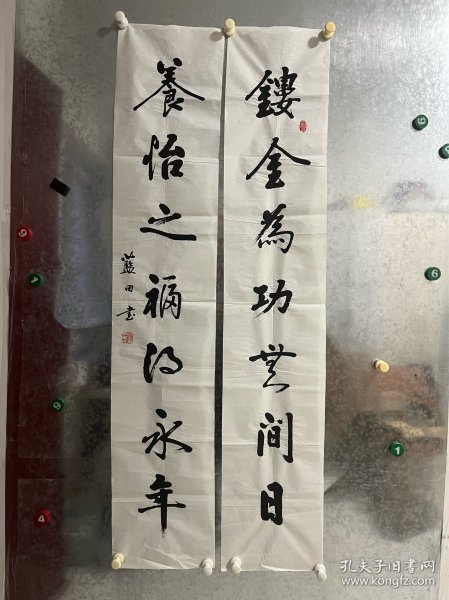 鏤金為功無間日
養怡之福得永年
藍田書
孔夫子旧书网
www.kongfz.com